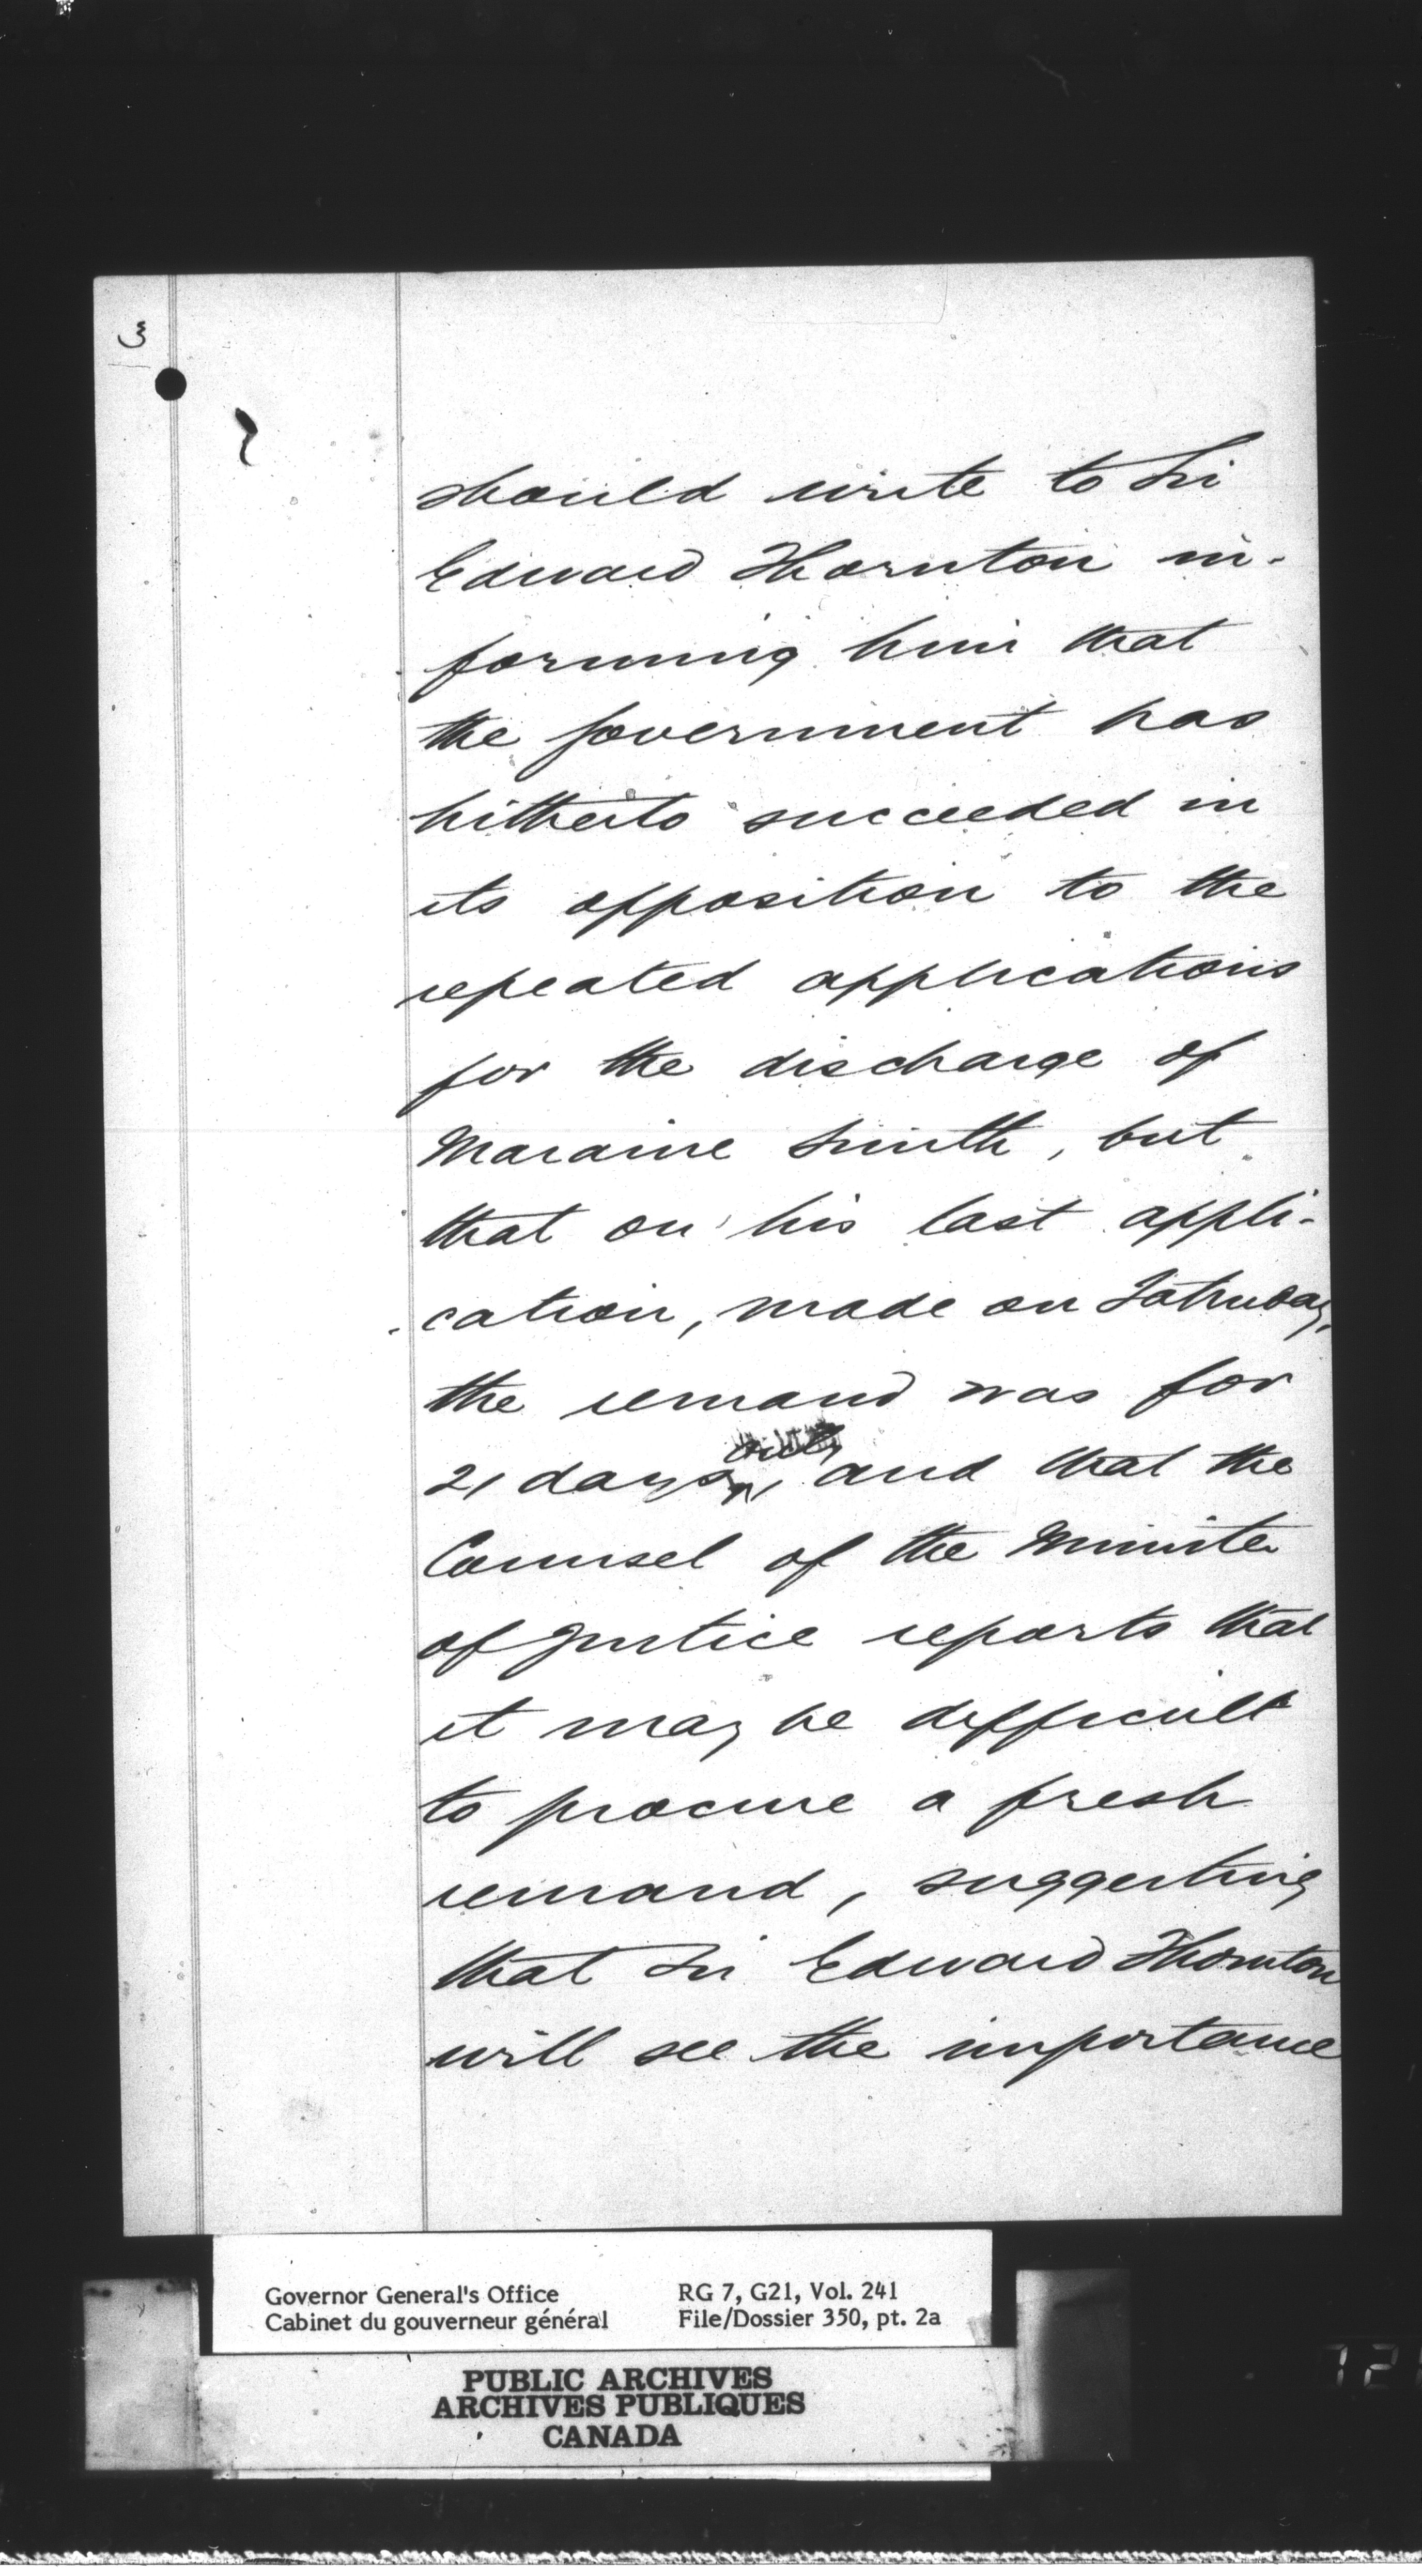 3
should write to Sir
Edward Thornton in-
forming him that
the Government has
hitherto succeeded in
its opposition to the
repeated applications
for the discharge of
Maraine Smith, but
that on his last appli-
cation, made on Saturday,
the remand was for
21 days only, and that the
Counsel of the Minister
of Justice reports that
it may be difficult
to procure a fresh
remand, suggesting
that Sir Edward Thornton
will see the importance
Governor General's Office RG 7, G21, Vol. 241
Cabinet du gouverneur général File/Dossier 350, pt. 2a
PUBLIC ARCHIVES
ARCHIVES PUBLIQUES
CANADA